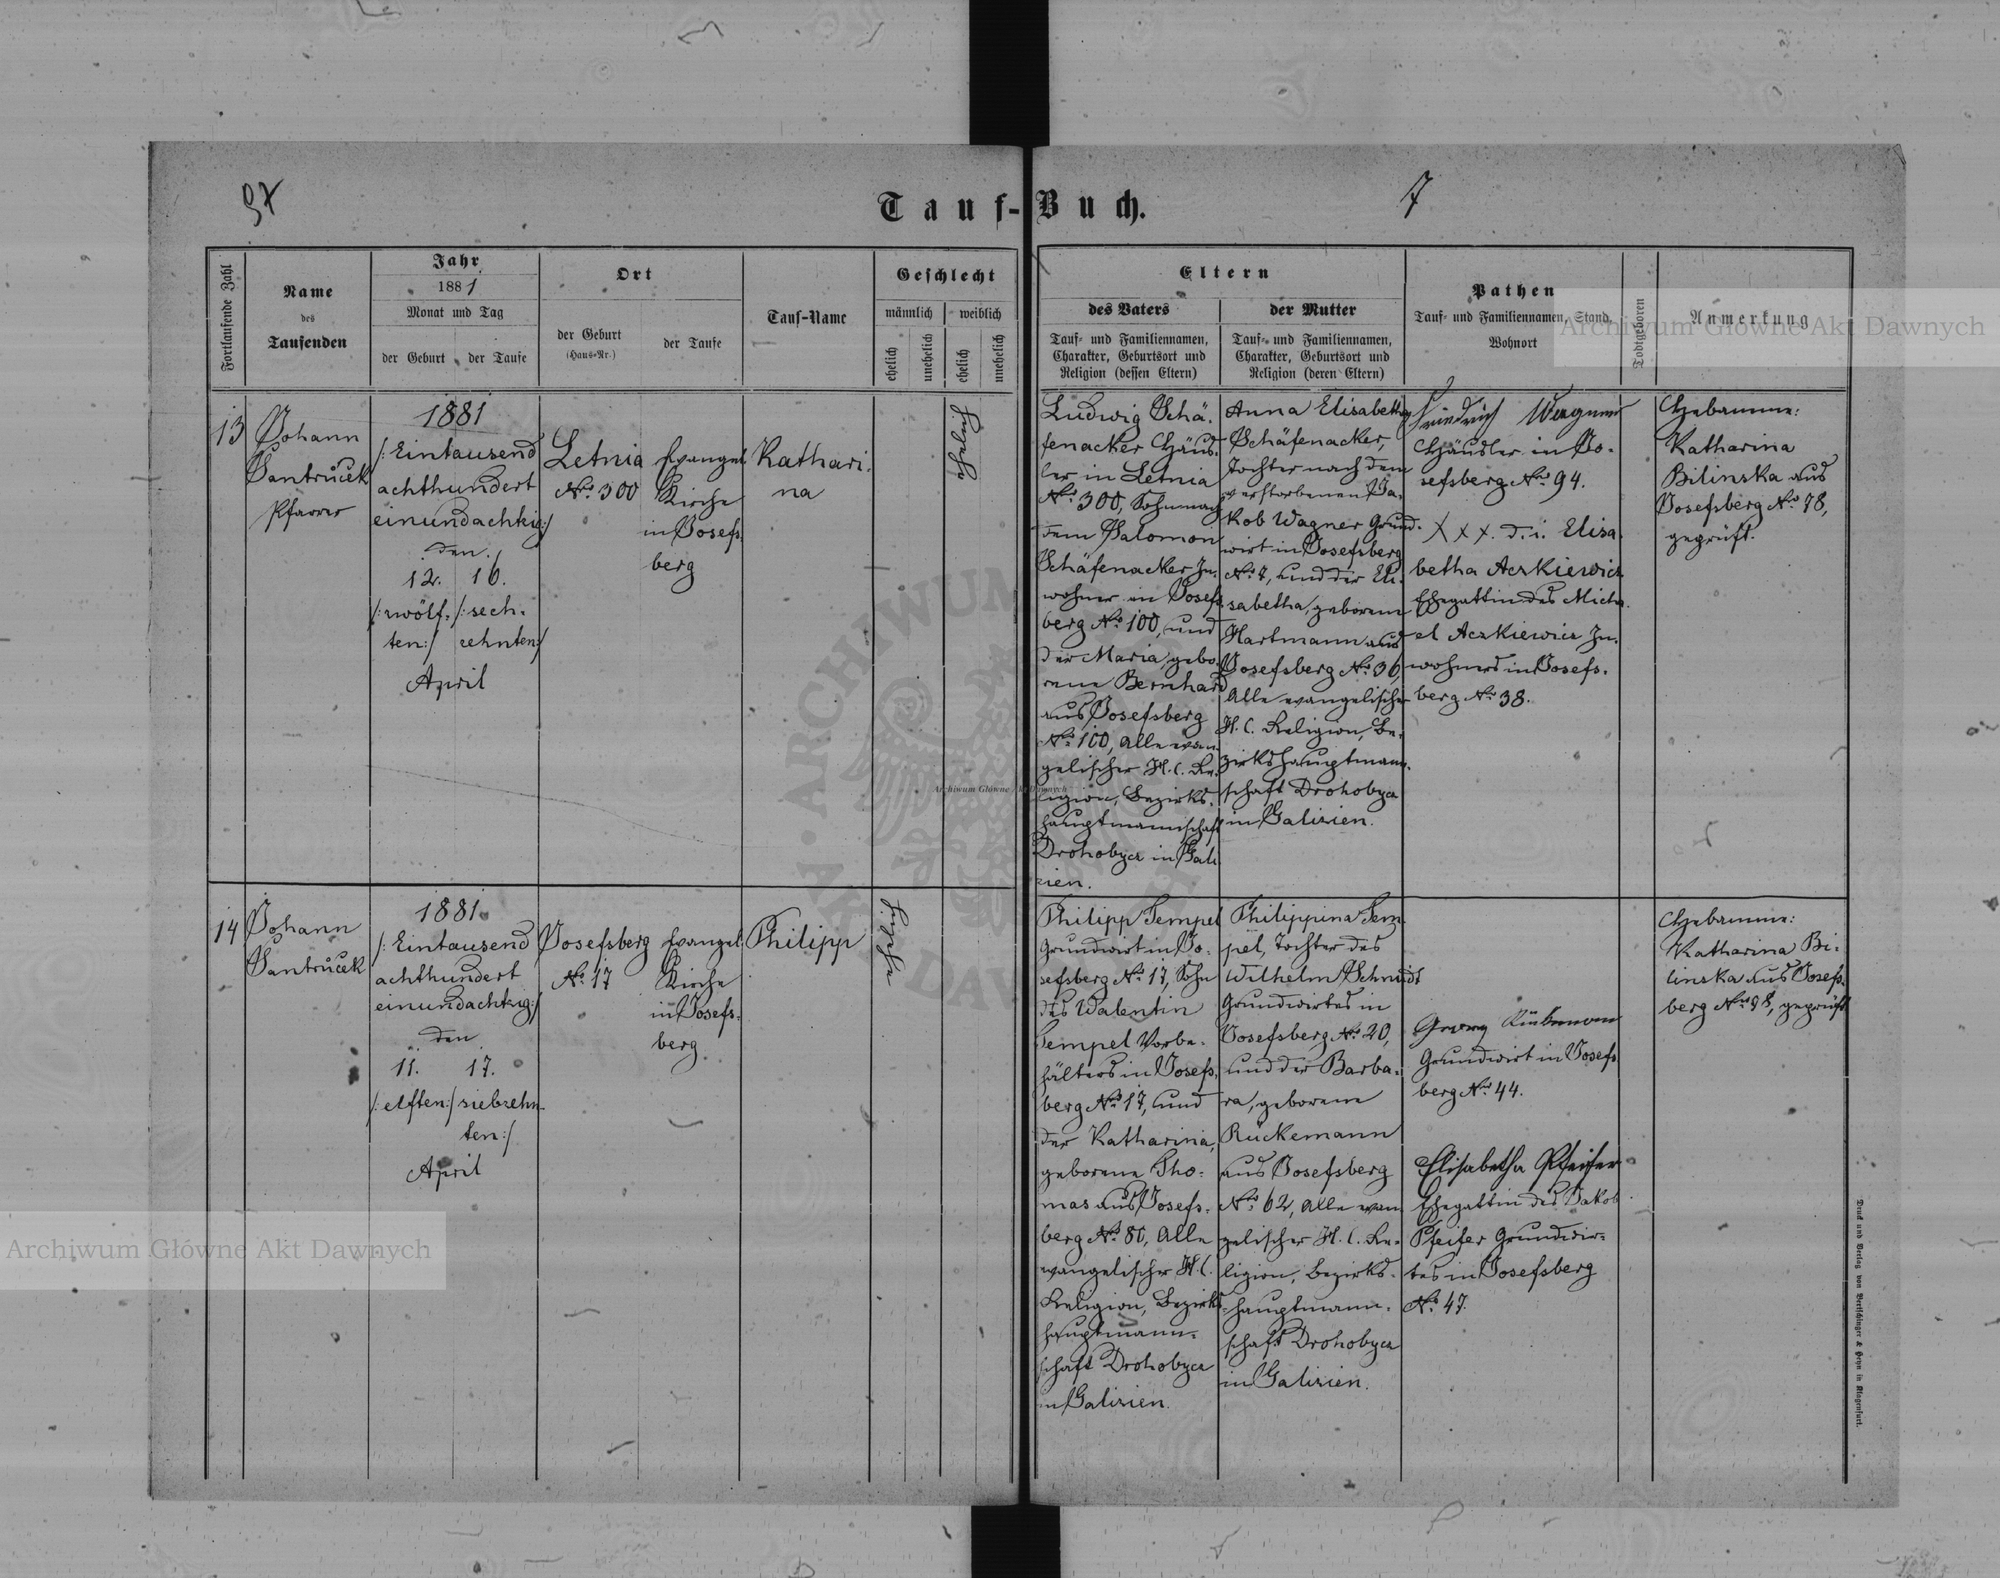 97
7
Tauf-Buch.
Fortlaufende Zahl
Name
des
Taufenden
Jahr
1881
Monat und Tag
der Geburt
der Taufe
Ort
der Geburt
(Haus-Nr.)
der Taufe
Tauf-Name
Geschlecht
männlich
weiblich
ehelich
unehelich
ehelich
unehelich
Eltern
des Vaters
Tauf- und Familiennamen,
Charakter, Geburtsort und
Religion (dessen Eltern)
der Mutter
Tauf- und Familiennamen,
Charakter, Geburtsort und
Religion (deren Eltern)
Pathen
Tauf- und Familiennamen, Stand,
Wohnort
Todtgeboren
Anmerkung
13
Johann
Jantrůcek
Pfarrer
1881
/:Eintausend
achthundert
einundachtzig:/
den
12. 16.
/:zwölf- /:sech-
ten:/ zehnten:/
April
Letnia
No. 300
Evangel.
Kirche
in Josefs-
berg
Kathari-
na
eheliche
Ludwig Schä-
fenacker Häus-
ler in Letnia
No. 300, Sohn nach
dem Salomon
Schäfenacker In-
wohner in Josefs-
berg No. 100, und
der Maria, gebo-
rene Bernhard
aus Josefsberg
No. 100, Alle evan-
gelischer H. C. Re-
ligion, Bezirks-
hauptmannschaft
Drohobycz in Gali-
zien.
Anna Elisabetha
Schäfenacker,
Tochter nach dem
verstorbenen Ja-
kob Wagner Grund-
wirt in Josefsberg
No. 7, und der Eli-
sabetha, geborene
Hartmann aus
Josefsberg No. 36,
Alle evangelischer
H. C. Religion, Be-
zirkshauptmann-
schaft Drohobycz
in Galizien.
Friedrich Wagner
Häusler in Jo-
sefsberg No. 94.
X x x. d. i. Elisa-
betha Aczkiewicz
Ehegattin des Micha-
el Aczkiewicz In-
wohners in Josefs-
berg No. 38.
Hebamme:
Katharina
Bilinska aus
Josefsberg No. 98,
geprüft.
14
Johann
Jantrůcek
1881
/:Eintausend
achthundert
einundachtzig:/
den
11. 17.
/:elften:/ siebzehn-
ten:/
April
Josefsberg
No. 17
Evangel.
Kirche
in Josefs-
berg
Philipp
eheliche
Philipp Tempel
Grundwirt in Jo-
sefsberg No. 17, Sohn
des Walentin
Tempel Vorbe-
hälters in Josefs-
berg No. 17, und
der Katharina,
geborene Tho-
mas aus Josefs-
berg No. 80, Alle
evangelischer H. C.
Religion, Bezirks-
hauptmann-
schaft Drohobycz
in Galizien.
Philippina Tem-
pel, Tochter des
Wilhelm Schmidt
Grundwirtes in
Josefsberg No. 20,
und der Barba-
ra, geborene
Rückemann
aus Josefsberg
No. 62, Alle evan-
gelischer H. C. Re-
ligion, Bezirks-
hauptmann-
schaft Drohobycz
in Galizien.
Georg
Grundwirt in Josefs-
berg No. 44.
Elisabetha Pfeifer
Ehegattin des Jakob
Pfeifer Grundwir-
tes in Josefsberg
No. 47.
Hebamme:
Katharina Bi-
linska aus Josefs-
berg No. 98, geprüft
Druck und Verlag von Bertschinger & Heyn in Klagenfurt.
Archiwum Główne Akt Dawnych
Archiwum Główne Akt Dawnych
Archiwum Główne Akt Dawnych